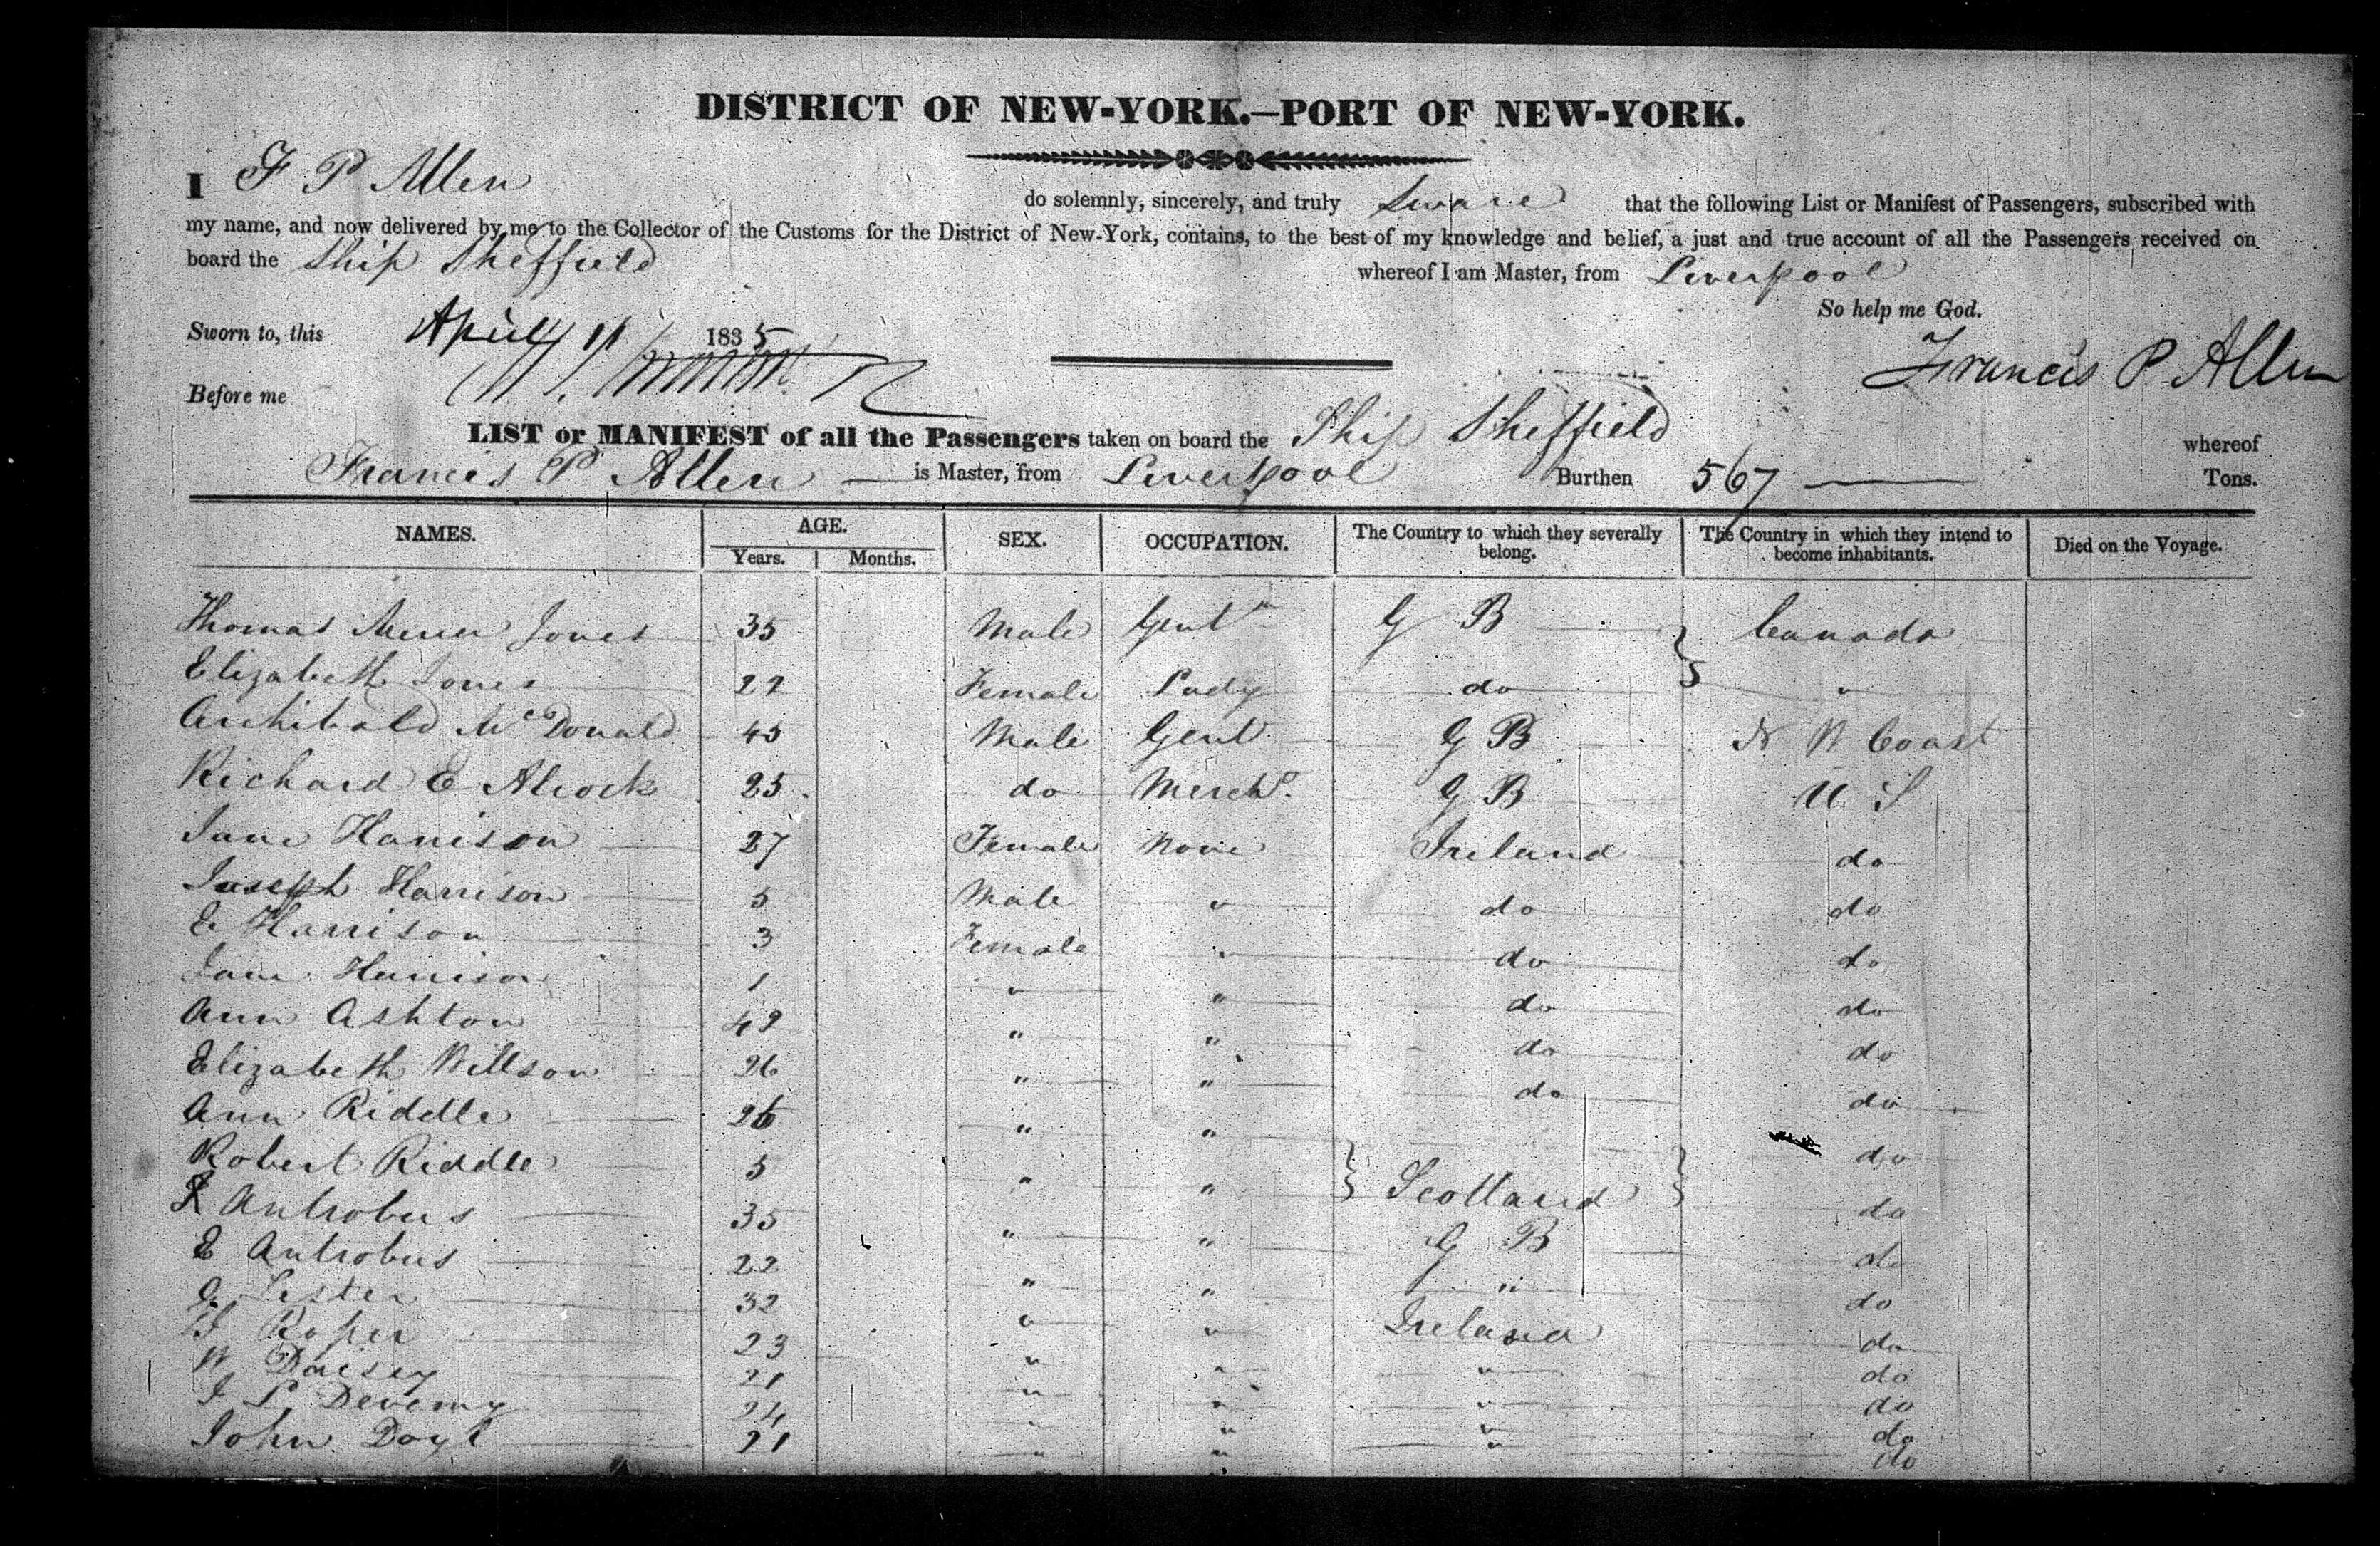 DISTRICT OF NEW-YORK.—PORT OF NEW-YORK.
I F P Allen do solemnly, sincerely, and truly Sware that the following List or Manifest of Passengers, subscribed with
my name, and now delivered by me to the Collector of the Customs for the District of New-York, contains, to the best of my knowledge and belief, a just and true account of all the Passengers received on
board the Ship Sheffield whereof I am Master, from Liverpool
So help me God.
Sworn to, this April 11 1835
Francis P Allen
Before me
LIST or MANIFEST of all the Passengers taken on board the Ship Sheffield whereof
Francis P Allen is Master, from Liverpool Burthen 567 Tons.
NAMES. AGE. SEX. OCCUPATION. The Country to which they severally belong. The Country in which they intend to become inhabitants. Died on the Voyage.
Years. Months.
Thomas Mercer Jones 35 Male Gentn G B Canada
Elizabeth Jones 22 Female Lady do "
Archibald McDonald 45 Male Gent G B N W Coast
Richard E Alcock 25 do Mercht. G B U S
Jane Harrison 27 Female None Ireland do
Joseph Harrison 5 Male " do do
E Harrison 3 Female " do do
Jane Harrison 1 " " do do
Ann Ashton 42 " " do do
Elizabeth Willson 26 " " do do
Ann Riddle 26 " " do
Robert Riddle 5 " " Scotland do
Antrobus 35 " " G B do
E Antrobus 22 " " " do
Lester 32 " " Ireland do
Roper 23 " " " do
W Daisey 21 " " " do
J L Devemy 24 " " " do
John Doyl 21 " " do